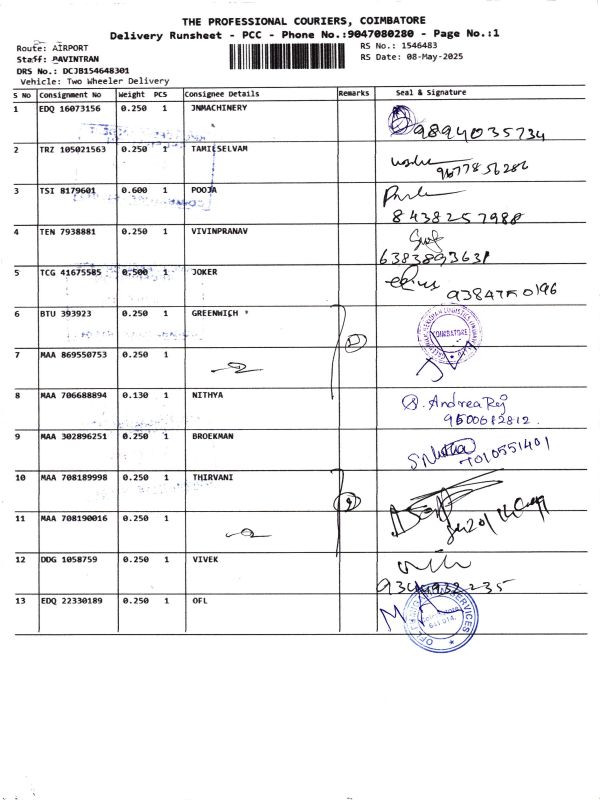 THE PROFESSIONAL COURIERS, COIMBATORE
Delivery Runsheet - PCC - Phone No.:9047080280 - Page No.:1
Route: AIRPORT
RS No.: 1546483
Staff: PAVINTRAN
RS Date: 08-May-2025
DRS No.: DCJB154648301
Vehicle: Two Wheeler Delivery
S No Consignment No Weight PCS Consignee Details Remarks Seal & Signature
1 EDQ 16073156 0.250 1 JNMACHINERY
9894035734
2 TRZ 105021563 0.250 1 TAMILSELVAM
9677856286
3 TSI 8179601 0.600 1 POOJA
8438257988
4 TEN 7938881 0.250 1 VIVINPRANAV
6383893631
5 TCG 41675585 0.500 1 JOKER
9384750196
6 BTU 393923 0.250 1 GREENWICH *
COIMBATORE
7 MAA 869550753 0.250 1
8 MAA 706688894 0.130 1 NITHYA
Andrea Rej
9500612812.
9 MAA 302896251 0.250 1 BROEKMAN
7010551401
10 MAA 708189998 0.250 1 THIRVANI
2
11 MAA 708190016 0.250 1
12 DDG 1058759 0.250 1 VIVEK
13 EDQ 22330189 0.250 1 OFL